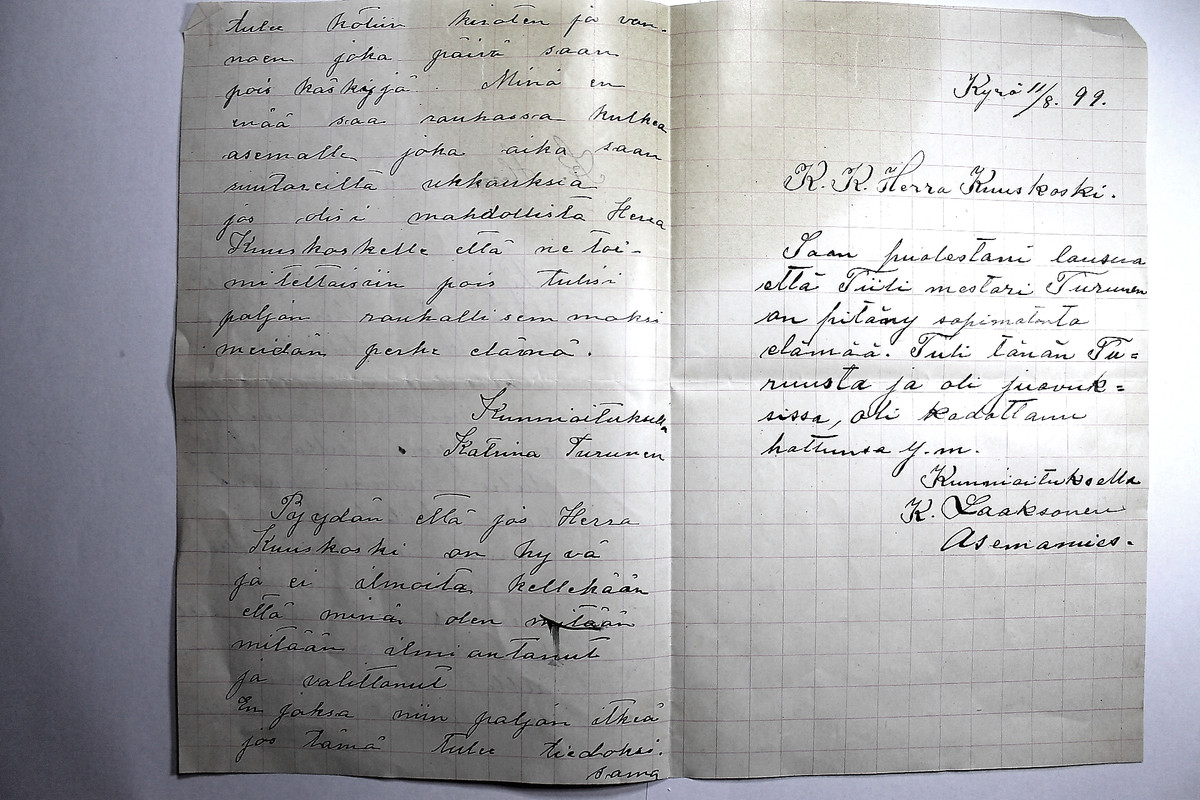 tulee kotiin kiroten ja van-
noen joka päivä saan
pois käskyjä. Minä en
enää saa rauhassa kulkea
asemalle joka aika saan
uhkauksia
jos olisi mahdollista Herra
Kuuskoskelle että ne toi-
mitettaisiin pois tulisi
paljon rauhallisemmaksi
meidän perhe elämä.
Kunnioituksella
Katrina Turunen
Pyydän että jos Herra
Kuuskoski on hyvä
ja ei ilmoita kellekään
että minä olen mitään
mitään ilmiantanut
ja valittanut
En jaksa niin paljon itkeä
jos tämä tulee tiedoksi.
sama
Kyrö 11/8. 99.
K. K. Herra Kuuskoski.
Saan puolestani lausua
että Tiili mestari Turunen
on pitäny sopimatonta
elämää. Tuli tänän Tu=
ruusta ja oli juovuk=
sissa, oli kadottanu
hattunsa y.m.
Kunnioituksella
K. Laaksonen
Asemamies.